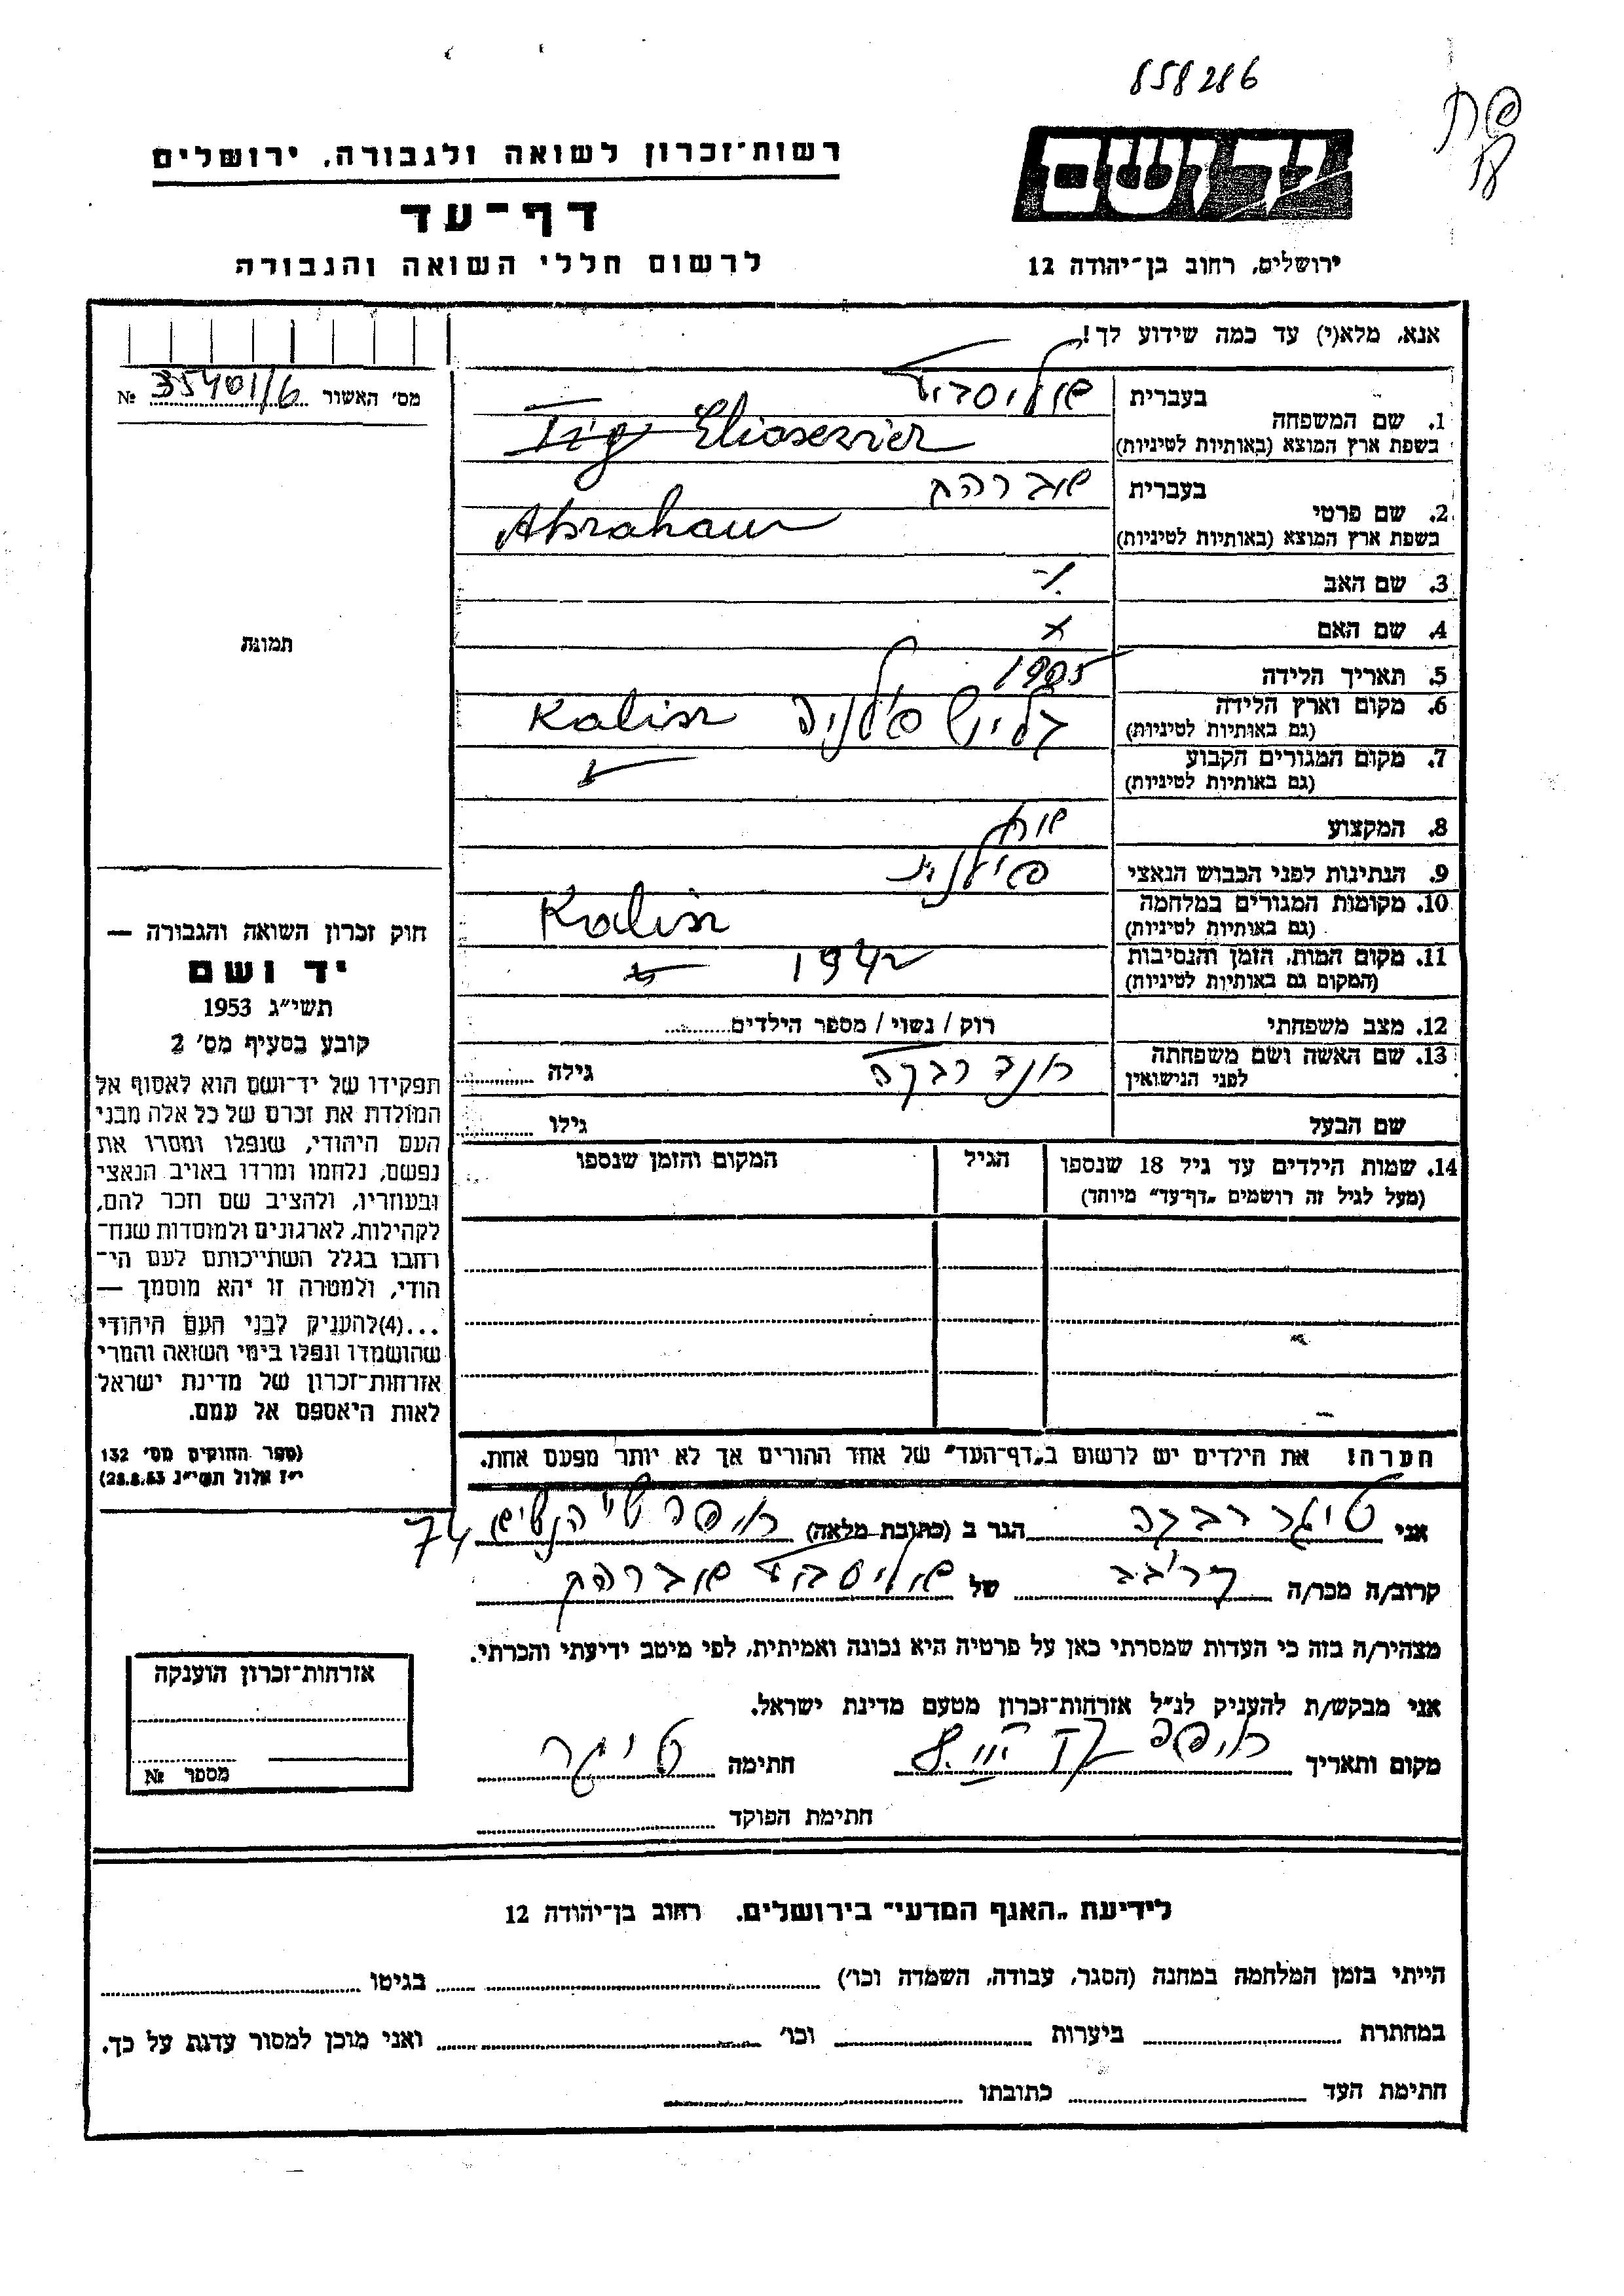 858286
יד ושם
רשות־זכרון לשואה ולגבורה, ירושלים
דף־עד
לרשום חללי השואה והגבורה
ירושלים, רחוב בן־יהודה 12
אנא, מלא(י) עד כמה שידוע לך!
מס' האשור 35401/6 №
1. שם המשפחה
בעברית
בשפת ארץ המוצא (באותיות לטיניות)
2. שם פרטי
בעברית אברהם
בשפת ארץ המוצא (באותיות לטיניות) Abraham
3. שם האב
4. שם האם x
5. תאריך הלידה 1905
6. מקום וארץ הלידה
(גם באותיות לטיניות) קליש פולניה Kalisz
7. מקום המגורים הקבוע
(גם באותיות לטיניות)
8. המקצוע
9. הנתינות לפני הכבוש הנאצי פולנית
10. מקומות המגורים במלחמה
(גם באותיות לטיניות) Kalisz
11. מקום המות, הזמן והנסיבות
(המקום גם באותיות לטיניות) 1942
12. מצב משפחתי רוק / נשוי / מספר הילדים
13. שם האשה ושם משפחתה
לפני הנישואין רבקה גילה
שם הבעל גילו
14. שמות הילדים עד גיל 18 שנספו
(מעל לגיל זה רושמים „דף־עד” מיוחד)
הגיל
המקום והזמן שנספו
הערה! את הילדים יש לרשום ב„דף־העד” של אחד ההורים אך לא יותר מפעם אחת.
תמונת
חוק זכרון השואה והגבורה —
יד ושם
תשי״ג 1953
קובע בסעיף מס' 2
תפקידו של יד־ושם הוא לאסוף אל
המולדת את זכרם של כל אלה מבני
העם היהודי, שנפלו ומסרו את
נפשם, נלחמו ומרדו באויב הנאצי
ובעוזריו, ולהציב שם וזכר להם,
לקהילות, לארגונים ולמוסדות שנח־
רבו בגלל השתייכותם לעם הי־
הודי, ולמטרה זו יהא מוסמך —
...(4) להעניק לבני העם היהודי
שהושמדו ונפלו בימי השואה והמרי
אזרחות־זכרון של מדינת ישראל
לאות היאספם אל עמם.
(ספר החוקים מס' 132
י״ז אלול תשי״ג 28.8.53)
אני טיגר רבקה הגר ב (כתובת מלאה) 74
קרוב/ה מכר/ה של אברהם
מצהיר/ה בזה כי העדות שמסרתי כאן על פרטיה היא נכונה ואמיתית, לפי מיטב ידיעתי והכרתי.
אני מבקש/ת להעניק לנ״ל אזרחות־זכרון מטעם מדינת ישראל.
מקום ותאריך חתימה טיגר
חתימת הפוקד
אזרחות־זכרון הוענקה
מספר №
לידיעת „האגף המדעי” בירושלים, רחוב בן־יהודה 12
הייתי בזמן המלחמה במחנה (הסגר, עבודה, השמדה וכו') בגיטו
במחתרת ביערות וכו' ואני מוכן למסור עדות על כך.
חתימת העד כתובתו